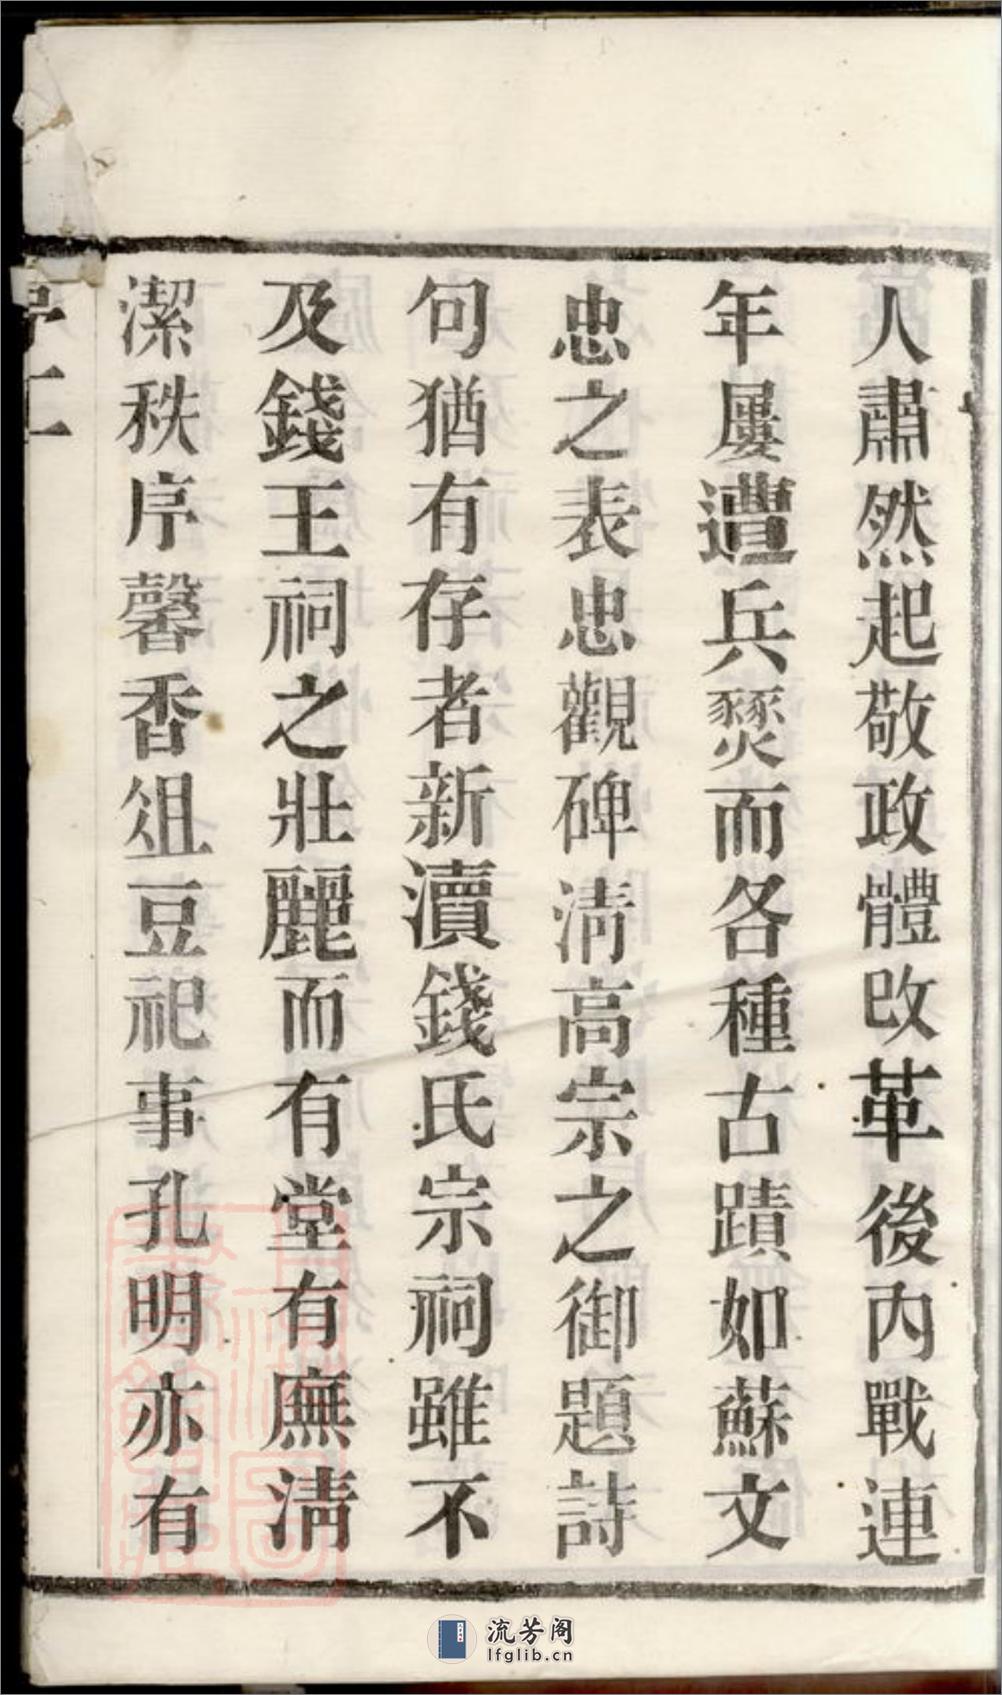 人肅然起敬政體改革後內戰連
年屢遭兵燹而各種古蹟如蘇文
忠之表忠觀碑清高宗之御題詩
句猶有存者新瀆錢氏宗祠雖不
及錢王祠之壯麗而有堂有廡清
潔秩序馨香俎豆祀事孔明亦有
流芳阁
lfglib.cn